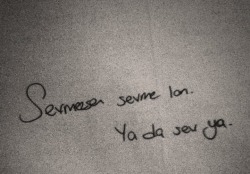 Sevmezsen sevme lan.
Ya da sev ya.